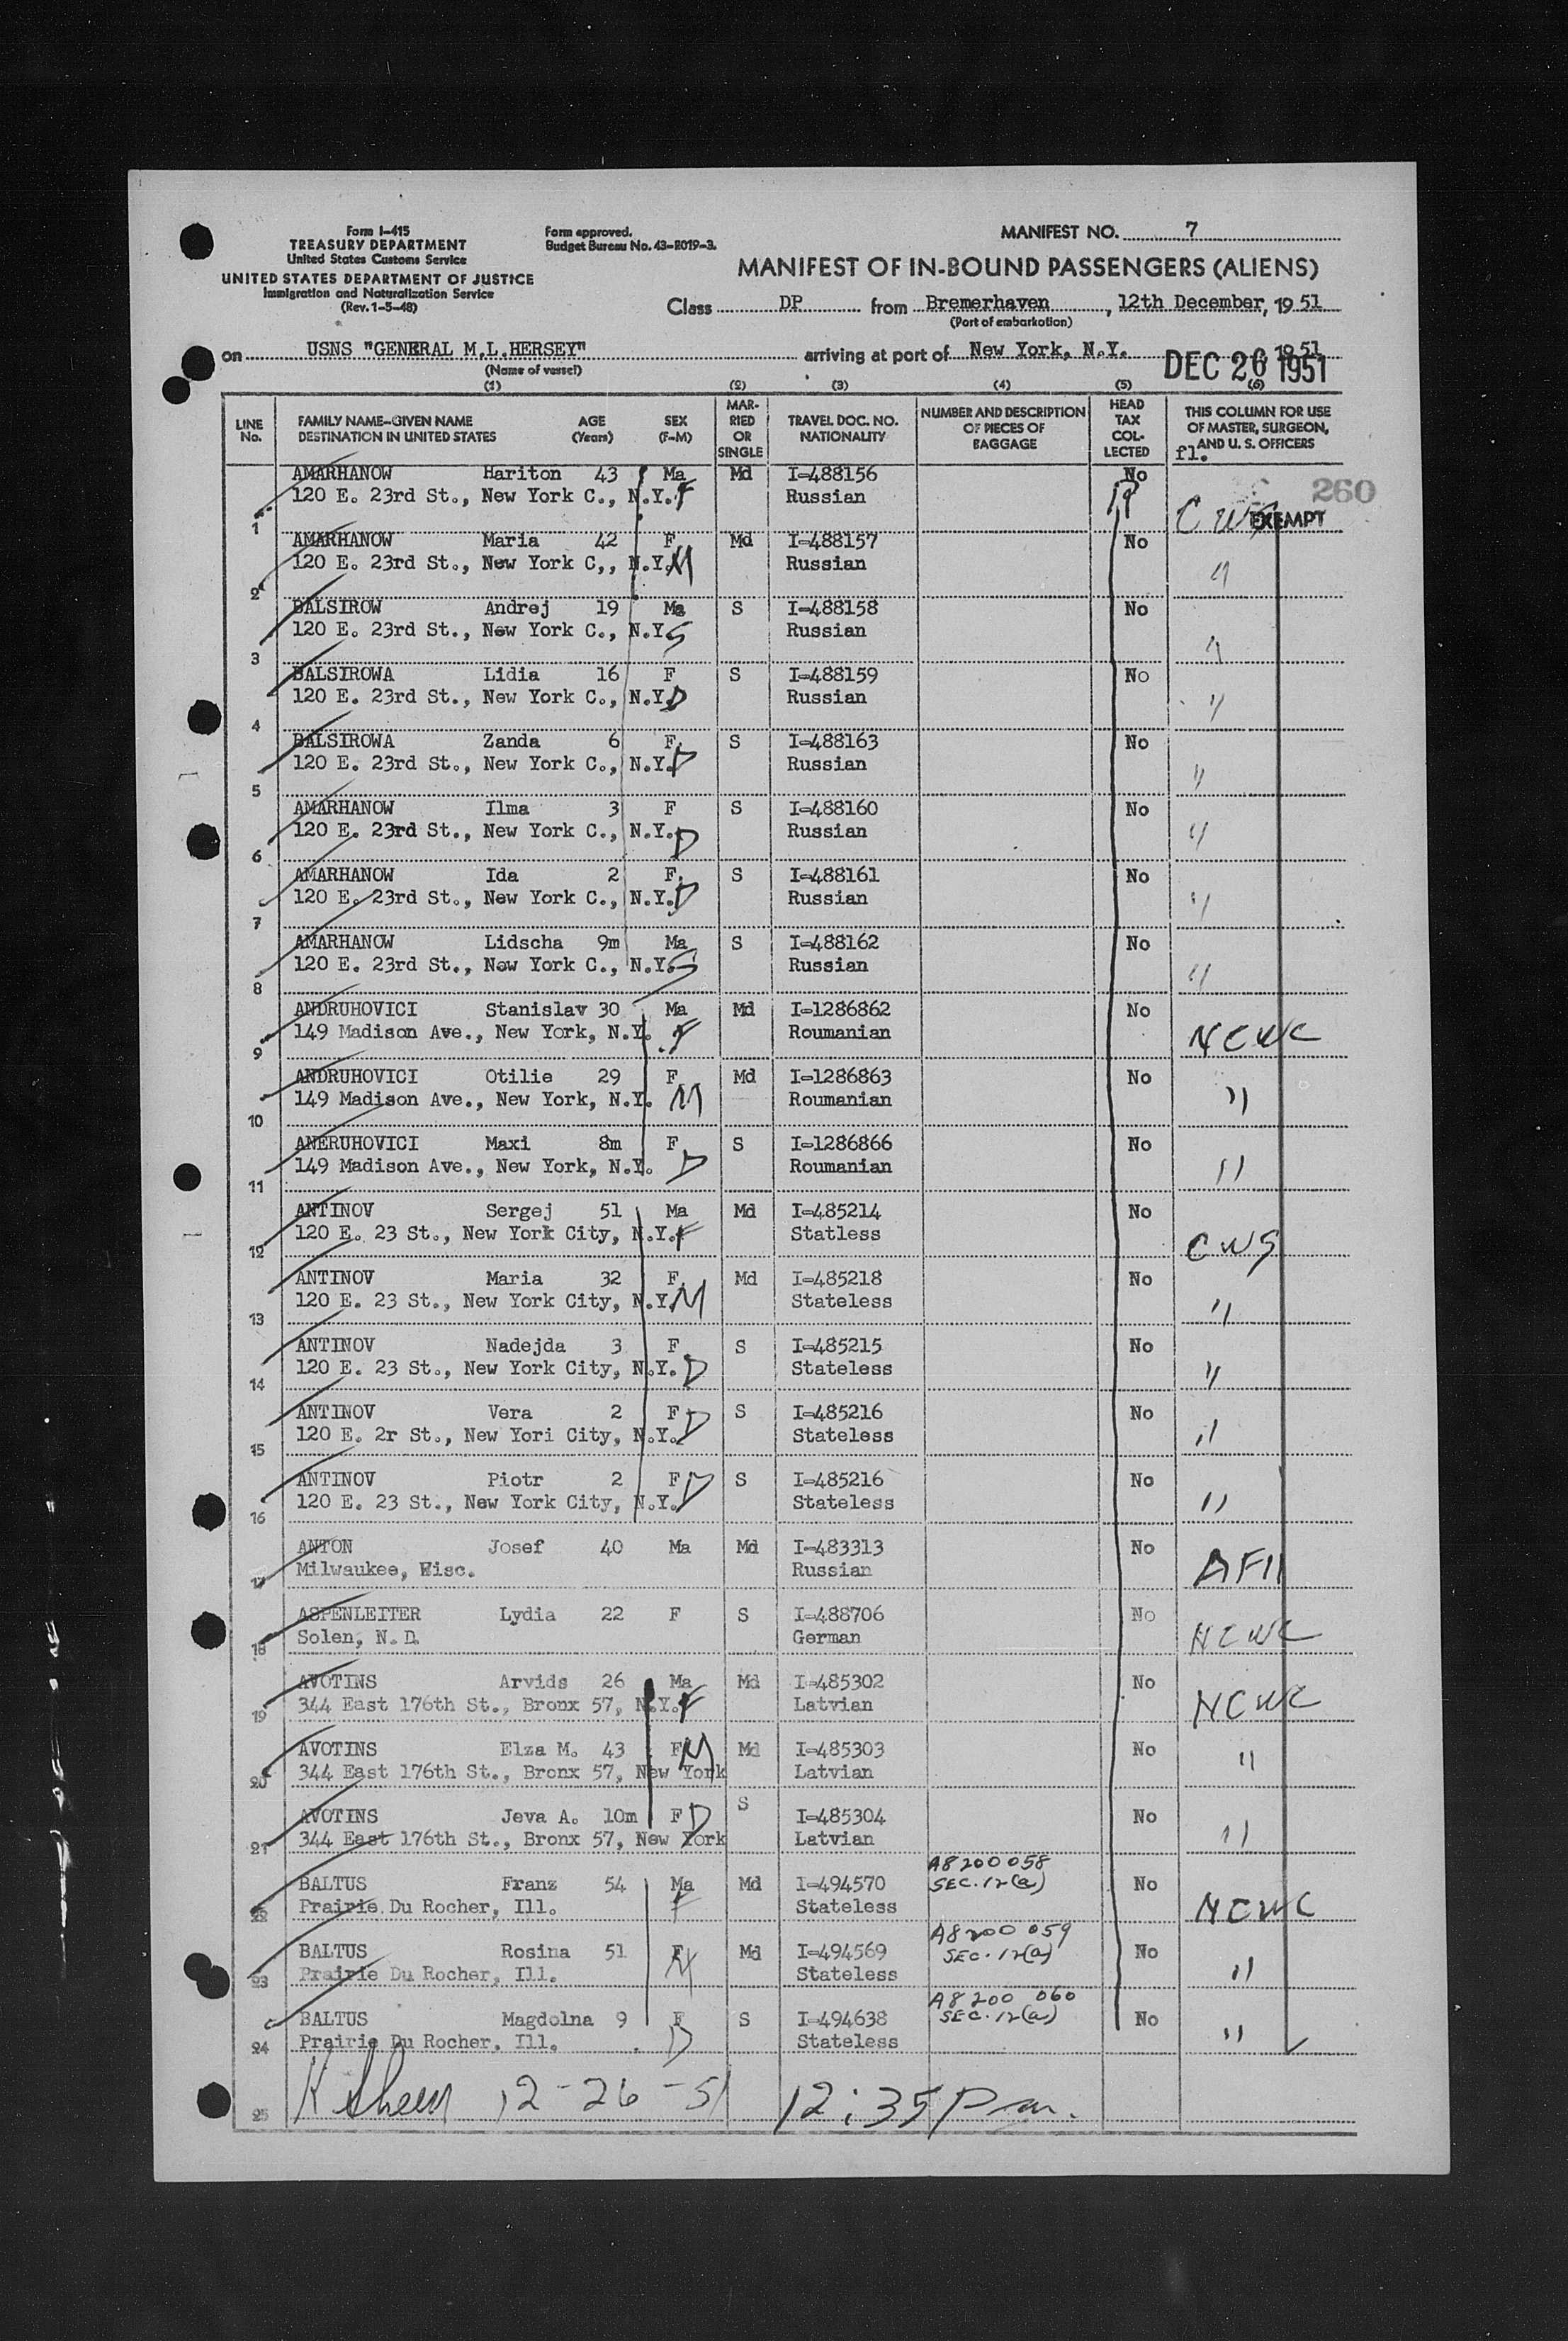 Form I-415
TREASURY DEPARTMENT
United States Customs Service
UNITED STATES DEPARTMENT OF JUSTICE
Immigration and Naturalization Service
(Rev. 1-5-48)
Form approved.
Budget Bureau No. 43-R019-3.
MANIFEST NO. 7
MANIFEST OF IN-BOUND PASSENGERS (ALIENS)
Class DP from Bremerhaven, 12th December, 1951
(Port of embarkation)
on USNS "GENERAL M.L.HERSEY" arriving at port of New York, N.Y. 1951
(Name of vessel)
DEC 26 1951
(1) (2) (3) (4) (5) (6)
LINE No. FAMILY NAME-GIVEN NAME DESTINATION IN UNITED STATES AGE (Years) SEX (F-M) MARRIED OR SINGLE TRAVEL DOC. NO. NATIONALITY NUMBER AND DESCRIPTION OF PIECES OF BAGGAGE HEAD TAX COLLECTED THIS COLUMN FOR USE OF MASTER, SURGEON, AND U. S. OFFICERS
fl.
260
AMARHANOW Hariton 43 Ma Md I-488156 No
1 120 E. 23rd St., New York C., N.Y. F Russian CWS EXEMPT
AMARHANOW Maria 42 F Md I-488157 No
2 120 E. 23rd St., New York C,, N.Y. M Russian "
BALSIROW Andrej 19 Ma S I-488158 No
3 120 E. 23rd St., New York C., N.Y. S Russian "
BALSIROWA Lidia 16 F S I-488159 No
4 120 E. 23rd St., New York C., N.Y. D Russian "
BALSIROWA Zanda 6 F S I-488163 No
5 120 E. 23rd St., New York C., N.Y. D Russian "
AMARHANOW Ilma 3 F S I-488160 No
6 120 E. 23rd St., New York C., N.Y. D Russian "
AMARHANOW Ida 2 F S I-488161 No
7 120 E. 23rd St., New York C., N.Y. D Russian "
AMARHANOW Lidscha 9m Ma S I-488162 No
8 120 E. 23rd St., New York C., N.Y. S Russian "
ANDRUHOVICI Stanislav 30 Ma Md I-1286862 No
9 149 Madison Ave., New York, N.Y. F Roumanian NCWC
ANDRUHOVICI Otilie 29 F Md I-1286863 No
10 149 Madison Ave., New York, N.Y. M Roumanian "
ANERUHOVICI Maxi 8m F S I-1286866 No
11 149 Madison Ave., New York, N.Y. D Roumanian "
ANTINOV Sergej 51 Ma Md I-485214 No
12 120 E. 23 St., New York City, N.Y. F Statless CWS
ANTINOV Maria 32 F Md I-485218 No
13 120 E. 23 St., New York City, N.Y. M Stateless "
ANTINOV Nadejda 3 F S I-485215 No
14 120 E. 23 St., New York City, N.Y. D Stateless "
ANTINOV Vera 2 F D S I-485216 No
15 120 E. 2r St., New Yori City, N.Y. Stateless "
ANTINOV Piotr 2 F D S I-485216 No
16 120 E. 23 St., New York City, N.Y. Stateless "
ANTON Josef 40 Ma Md I-483313 No
17 Milwaukee, Wisc. Russian
ASPENLEITER Lydia 22 F S I-488706 No
18 Solen, N. D. German NCWC
AVOTINS Arvids 26 Ma Md I-485302 No
19 344 East 176th St., Bronx 57, N.Y. F Latvian NCWC
AVOTINS Elza M. 43 F M Md I-485303 No
20 344 East 176th St., Bronx 57, New York Latvian "
AVOTINS Jeva A. 10m F D S I-485304 No
21 344 East 176th St., Bronx 57, New York Latvian "
BALTUS Franz 54 Ma Md I-494570 A8200058 SEC.12(a) No
22 Prairie Du Rocher, Ill. F Stateless NCWC
BALTUS Rosina 51 F Md I-494569 A8200059 SEC.12(a) No
23 Prairie Du Rocher, Ill. M Stateless "
BALTUS Magdolna 9 F S I-494638 A8200 060 SEC.12(a) No
24 Prairie Du Rocher, Ill. D Stateless "
25 12-26-51 12:35 Pm.